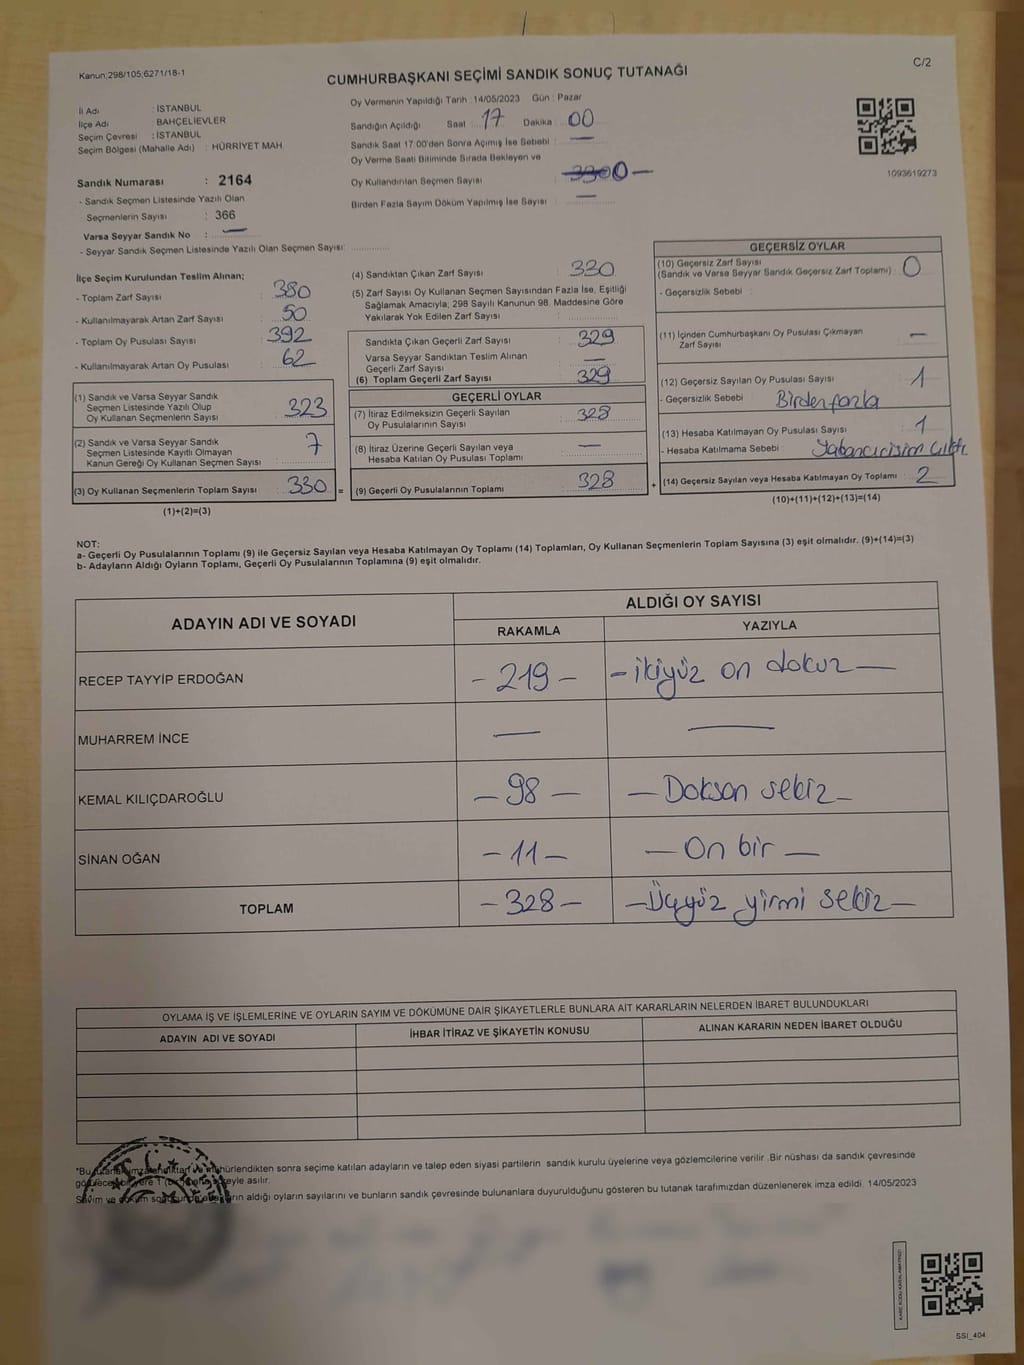 Kanun;298/105;6271/18-1
C/2
CUMHURBAŞKANI SEÇİMİ SANDIK SONUÇ TUTANAĞI
İl Adı : İSTANBUL
İlçe Adı : BAHÇELİEVLER
Seçim Çevresi : İSTANBUL
Seçim Bölgesi (Mahalle Adı) : HÜRRİYET MAH.
Sandık Numarası : 2164
- Sandık Seçmen Listesinde Yazılı Olan
Seçmenlerin Sayısı : 366
Varsa Seyyar Sandık No : —
- Seyyar Sandık Seçmen Listesinde Yazılı Olan Seçmen Sayısı: ............
Oy Vermenin Yapıldığı Tarih : 14/05/2023 Gün : Pazar
Sandığın Açıldığı Saat : 17 Dakika : 00
Sandık Saat 17.00'den Sonra Açımış İse Sebebi : —
Oy Verme Saati Bitiminde Sırada Bekleyen ve
Oy Kullandırılan Seçmen Sayısı : 0 —
Birden Fazla Sayım Döküm Yapılmış İse Sayısı : —
1093619273
İlçe Seçim Kurulundan Teslim Alınan;
- Toplam Zarf Sayısı : 380
- Kullanılmayarak Artan Zarf Sayısı : 50
- Toplam Oy Pusulası Sayısı : 392
- Kullanılmayarak Artan Oy Pusulası : 62
(1) Sandık ve Varsa Seyyar Sandık
Seçmen Listesinde Yazılı Olup
Oy Kullanan Seçmenlerin Sayısı : 323
(2) Sandık ve Varsa Seyyar Sandık
Seçmen Listesinde Kayıtlı Olmayan
Kanun Gereği Oy Kullanan Seçmen Sayısı : 7
(3) Oy Kullanan Seçmenlerin Toplam Sayısı : 330 =
(1)+(2)=(3)
(4) Sandıktan Çıkan Zarf Sayısı : 330
(5) Zarf Sayısı Oy Kullanan Seçmen Sayısından Fazla İse, Eşitliği
Sağlamak Amacıyla; 298 Sayılı Kanunun 98. Maddesine Göre
Yakılarak Yok Edilen Zarf Sayısı : ............
Sandıkta Çıkan Geçerli Zarf Sayısı : 329
Varsa Seyyar Sandıktan Teslim Alınan
Geçerli Zarf Sayısı : —
(6) Toplam Geçerli Zarf Sayısı : 329
GEÇERLİ OYLAR
(7) İtiraz Edilmeksizin Geçerli Sayılan
Oy Pusulalarının Sayısı : 328
(8) İtiraz Üzerine Geçerli Sayılan veya
Hesaba Katılan Oy Pusulası Toplamı : —
(9) Geçerli Oy Pusulalarının Toplamı : 328 +
GEÇERSİZ OYLAR
(10) Geçersiz Zarf Sayısı
(Sandık ve Varsa Seyyar Sandık Geçersiz Zarf Toplamı) : 0
- Geçersizlik Sebebi :
(11) İçinden Cumhurbaşkanı Oy Pusulası Çıkmayan
Zarf Sayısı : —
(12) Geçersiz Sayılan Oy Pusulası Sayısı : 1
- Geçersizlik Sebebi : Birden fazla
(13) Hesaba Katılmayan Oy Pusulası Sayısı : 1
- Hesaba Katılmama Sebebi : Yabancı cisim çıktı
(14) Geçersiz Sayılan veya Hesaba Katılmayan Oy Toplamı : 2
(10)+(11)+(12)+(13)=(14)
NOT:
a- Geçerli Oy Pusulalarının Toplamı (9) ile Geçersiz Sayılan veya Hesaba Katılmayan Oy Toplamı (14) Toplamları, Oy Kullanan Seçmenlerin Toplam Sayısına (3) eşit olmalıdır. (9)+(14)=(3)
b- Adayların Aldığı Oyların Toplamı, Geçerli Oy Pusulalarının Toplamına (9) eşit olmalıdır.
ADAYIN ADI VE SOYADI ALDIĞI OY SAYISI
RAKAMLA YAZIYLA
RECEP TAYYİP ERDOĞAN - 219 - - ikiyüz on dokuz —
MUHARREM İNCE — —
KEMAL KILIÇDAROĞLU — 98 — — Doksan sekiz —
SİNAN OĞAN — 11 — — On bir —
TOPLAM — 328 — — Üçyüz yirmi sekiz —
OYLAMA İŞ VE İŞLEMLERİNE VE OYLARIN SAYIM VE DÖKÜMÜNE DAİR ŞİKAYETLERLE BUNLARA AİT KARARLARIN NELERDEN İBARET BULUNDUKLARI
ADAYIN ADI VE SOYADI İHBAR İTİRAZ VE ŞİKAYETİN KONUSU ALINAN KARARIN NEDEN İBARET OLDUĞU
*Bu mühürlendikten sonra seçime katılan adayların ve talep eden siyasi partilerin sandık kurulu üyelerine veya gözlemcilerine verilir .Bir nüshası da sandık çevresinde
asılır.
Sayım ve aldığı oyların sayılarını ve bunların sandık çevresinde bulunanlara duyurulduğunu gösteren bu tutanak tarafımızdan düzenlenerek imza edildi. 14/05/2023
SSİ_404